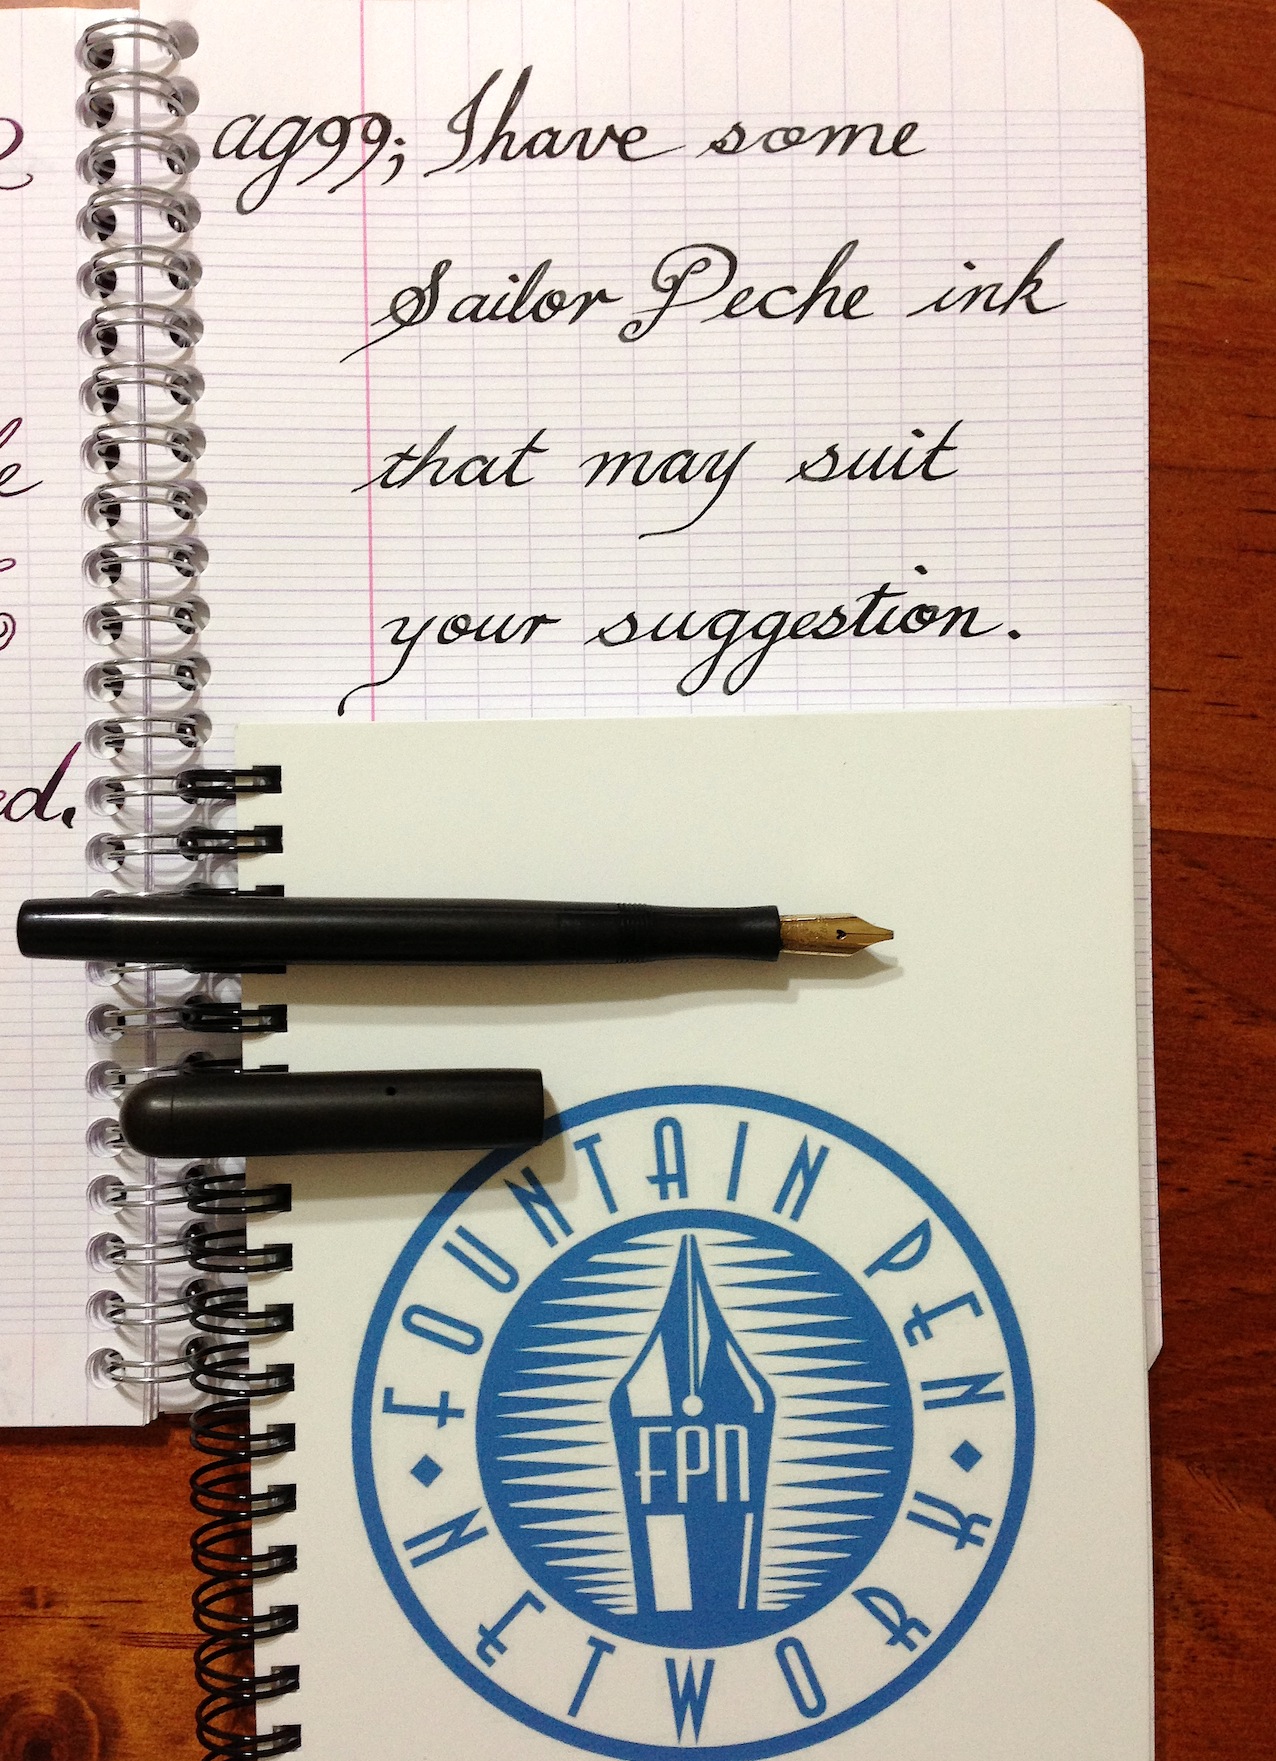 ag99; I have some
Sailor Peche ink
that may suit
your suggestion.
ed.
FOUNTAIN PEN
NETWORK
FPN